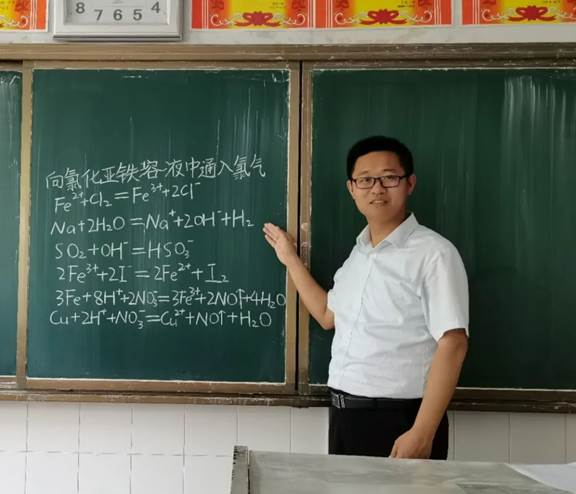 8 7 6 5 4
向氯化亚铁溶液中通入氯气
Fe²⁺+Cl₂=Fe³⁺+2Cl⁻
Na+2H₂O=Na⁺+2OH⁻+H₂
SO₂+OH⁻=HSO₃⁻
2Fe³⁺+2I⁻=2Fe²⁺+I₂
3Fe+8H⁺+2NO₃⁻=3Fe³⁺+2NO↑+4H₂O
Cu+2H⁺+NO₃⁻=Cu²⁺+NO↑+H₂O